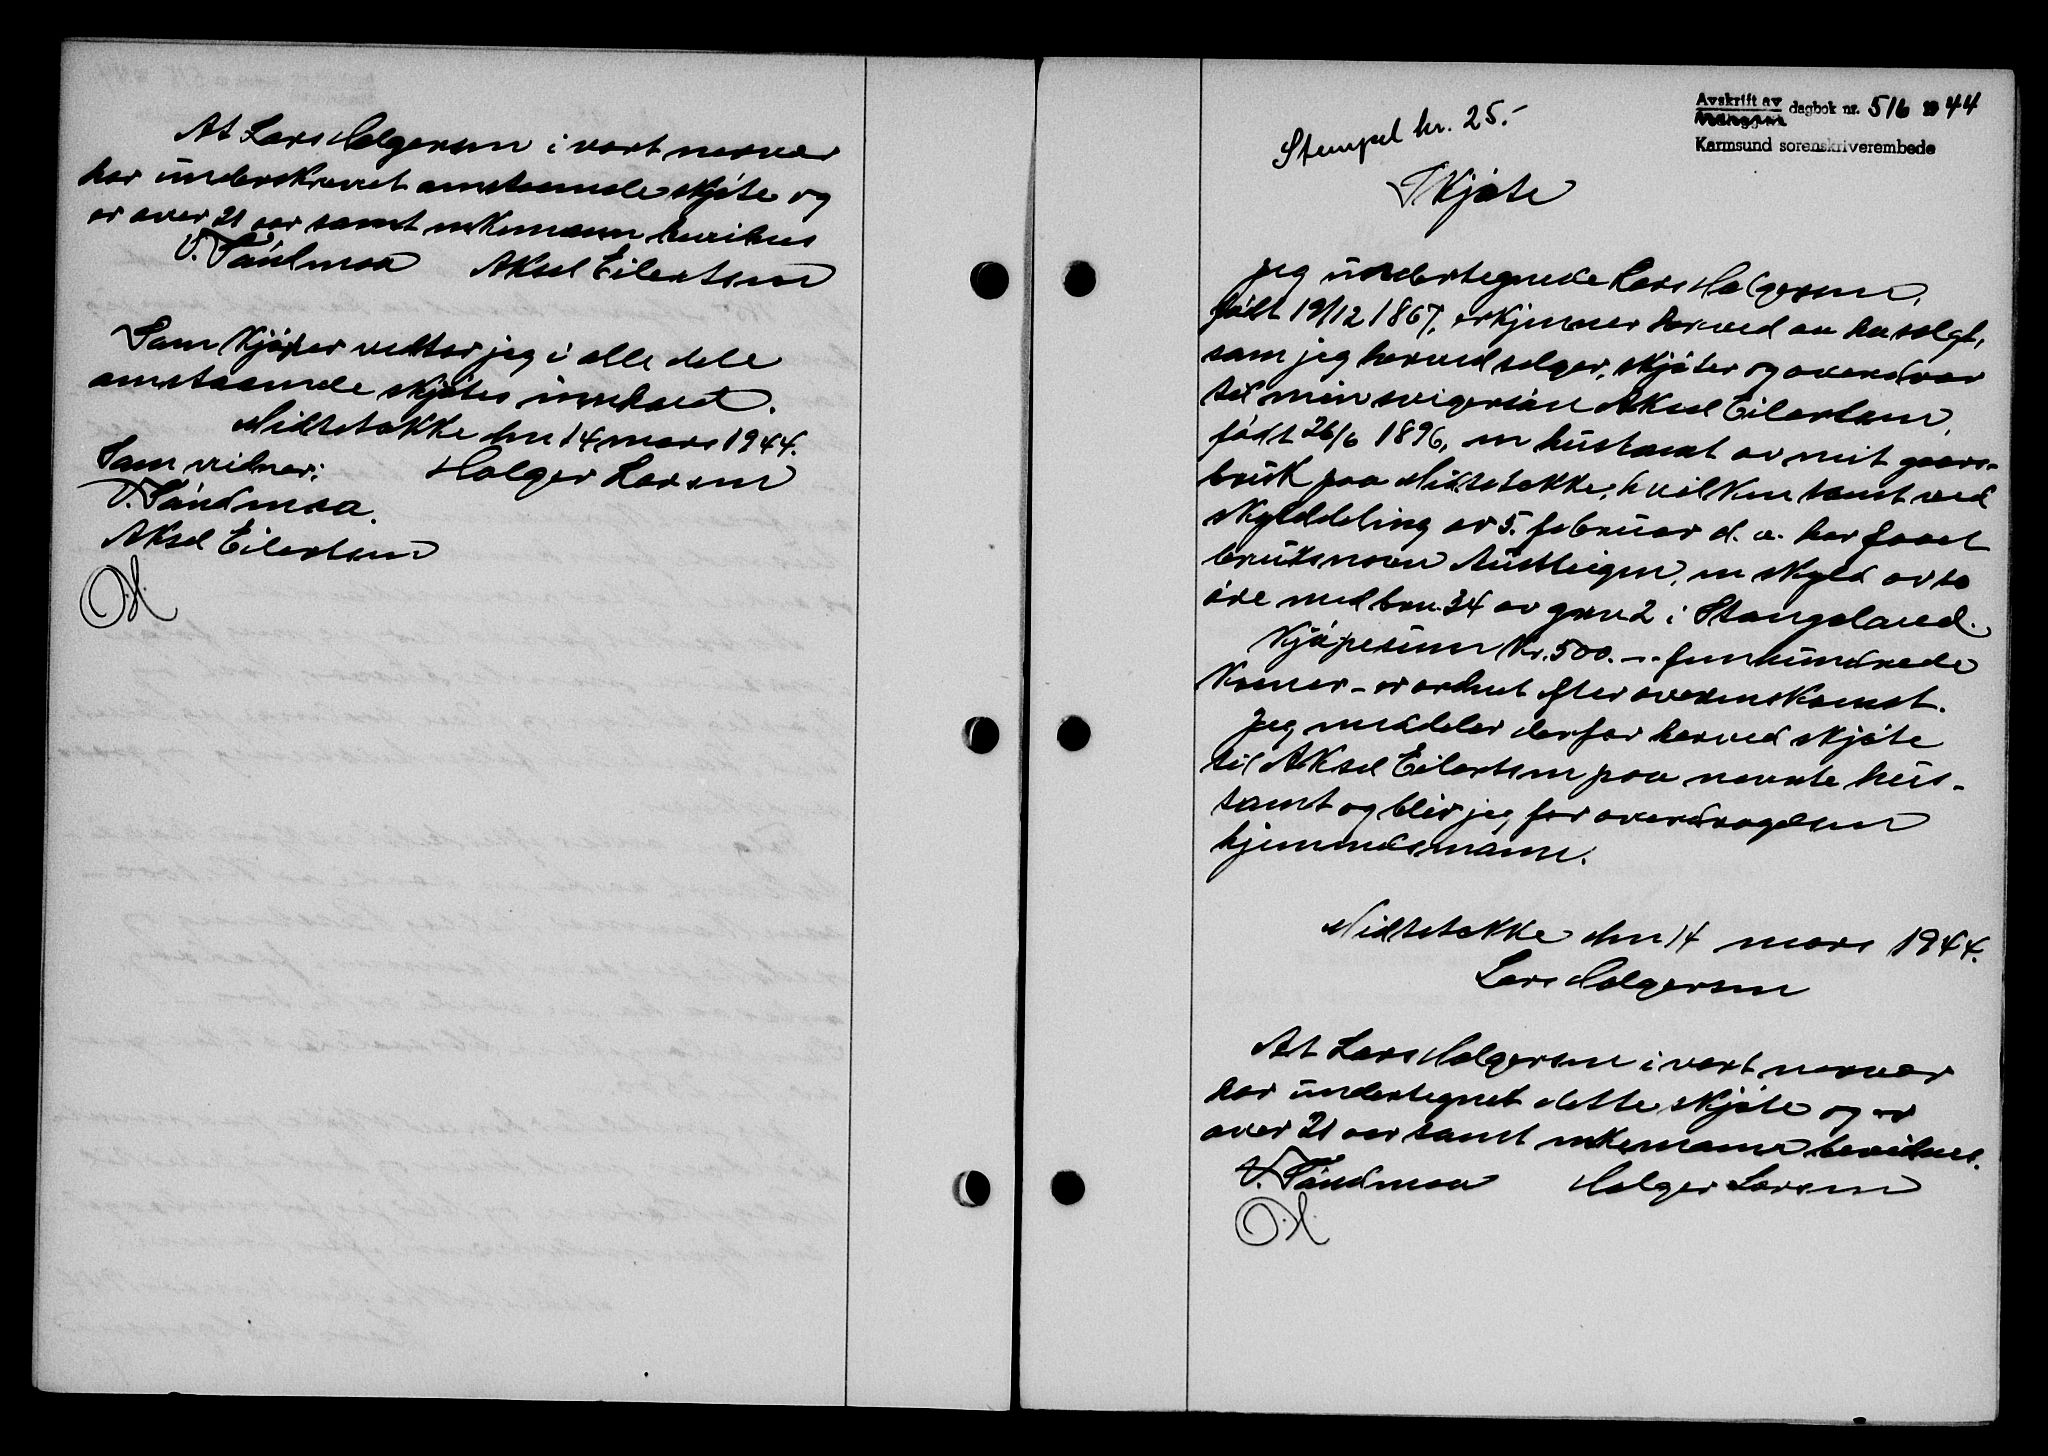 At Lars Holgersen i vort nerver
har underskrevet omstaaende skjøte og
er over 21 aar samt enkemann bevitnes
V. Sundmoa Aksel Eilertsen
Som kjøper vedtar jeg i alle dele
omstaaende skjøtes innhold.
Midtstokke den 14 mars 1944.
Som vidner: Holger Larsen
V. Sundmoa.
Aksel Eilertsen
Avskrift av dagbok nr. 516 1944
Karmsund sorenskriverembede
Stempel kr. 25.-
Skjøte
Jeg undertegnede Lars Holgersen,
født 19/12 1867, erkjenner herved aa ha solgt,
som jeg herved selger, skjøter og overdrar
til min svigersøn Aksel Eilertsen,
født 26/6 1896, en hustomt av mit gaars-
bruk paa Midtstokke, hvilken tomt ved
skylddeling av 5. februar d. a. har faaet
bruksnavn Austheigen, en skyld av to
øre med bnr. 34 av gnr 2 i Stangeland.
Kjøpesum Kr. 500.-- femhundrede
Kroner - er ordnet efter overenskomst.
Jeg meddeler derfor herved skjøte
til Aksel Eilertsen paa nevnte hus-
tomt og blir jeg for overdragelsen
hjemmelsmann.
Midtstokke den 14 mars 1944.
Lars Holgersen
At Lars Holgersen i vort nerver
har undertegnet dette skjøte og er
over 21 aar samt enkemann bevitnes.
V. Sundmoa Holger Larsen